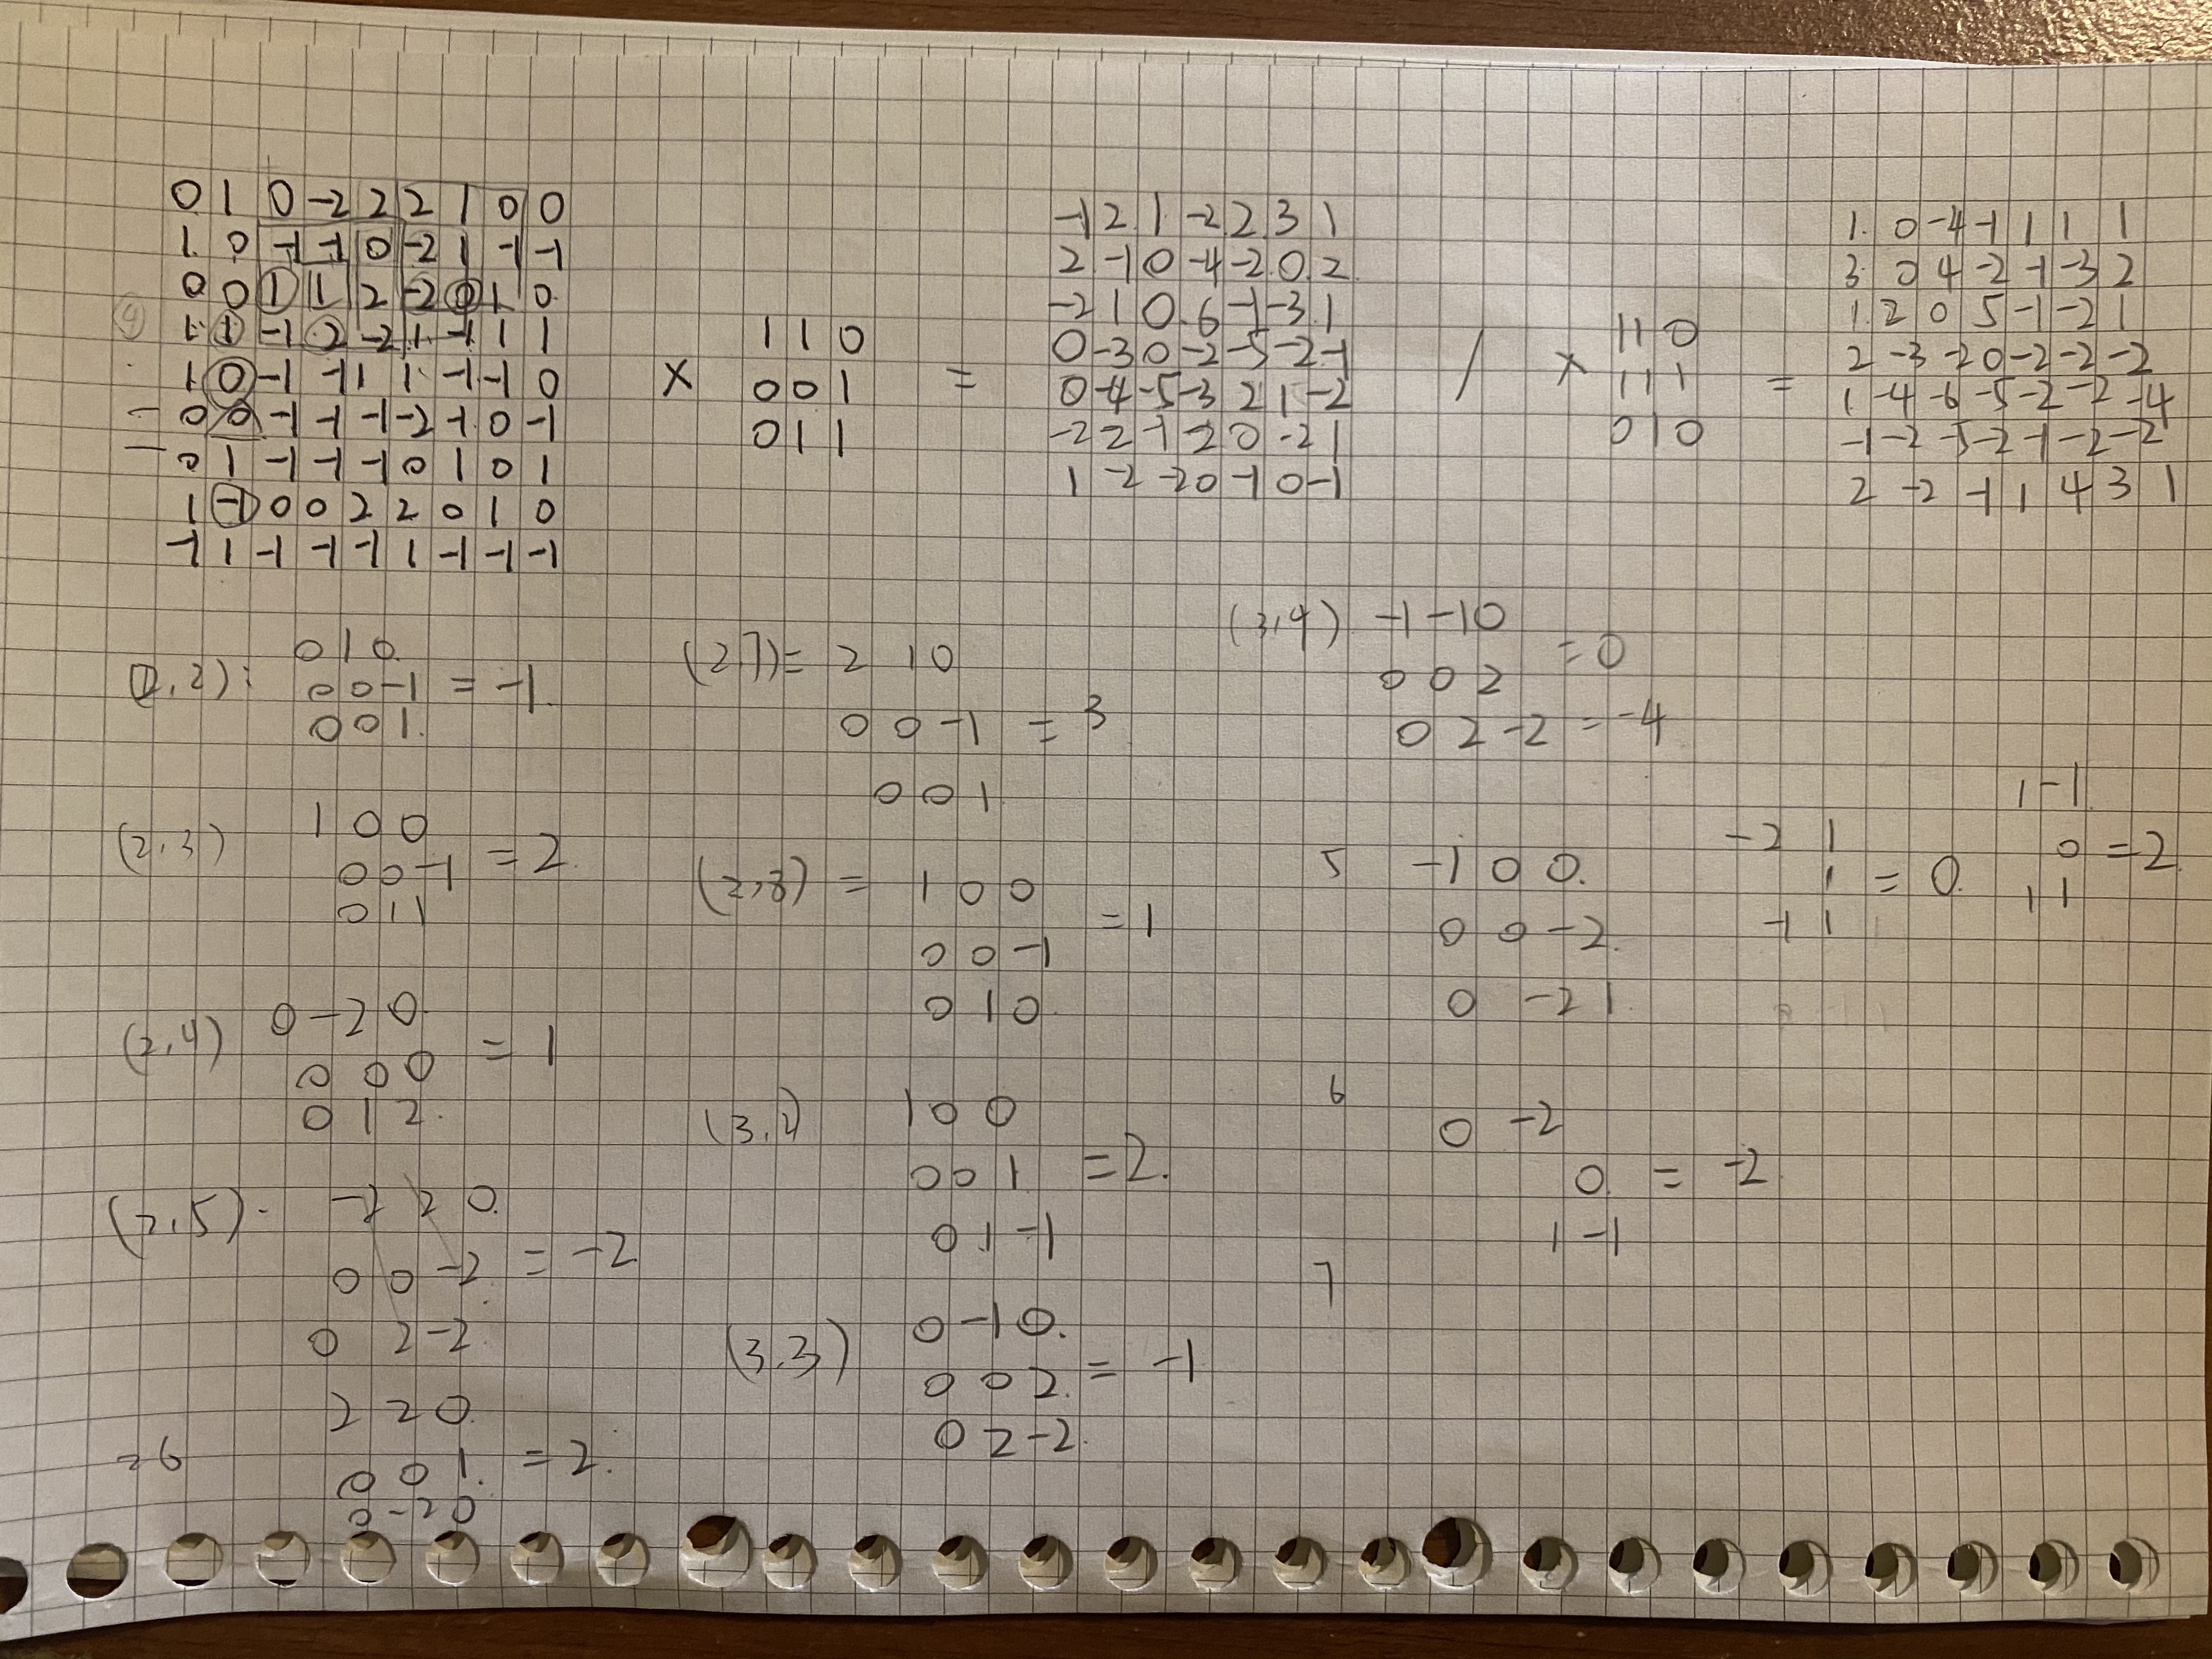 0 1 0 -2 2 2 1 0 0
1 0 -1 -1 0 -2 1 -1 -1
0 0 1 1 2 -2 0 1 0
1 1 -1 2 -2 1 -1 1 1
1 0 -1 -1 1 1 -1 -1 0
- 0 0 -1 -1 -1 -2 -1 0 -1
- 0 1 -1 -1 -1 0 1 0 1
1 -1 0 0 2 2 0 1 0
-1 1 -1 -1 -1 1 -1 -1 -1
×
1 1 0
0 0 1
0 1 1
=
-1 2 1 -2 2 3 1
2 -1 0 -4 -2 0 2
-2 1 0 6 -1 -3 1
0 -3 0 -2 -5 -2 -1
0 -4 -5 -3 2 1 -2
-2 2 -1 -2 0 -2 1
1 -2 -2 0 -1 0 -1
/
×
1 1 0
1 1 1
0 1 0
=
1 0 -4 -1 1 1 1
3 0 4 -2 -1 -3 2
1 2 0 5 -1 -2 1
2 -3 -2 0 -2 -2 -2
1 -4 -6 -5 -2 -2 -4
-1 -2 -5 -2 -1 -2 -2
2 -2 -1 1 4 3 1
(2,2):
0 1 0
0 0 -1 = -1
0 0 1
(2,3)
1 0 0
0 0 -1 = 2
0 1 1
(2,4)
0 -2 0
0 0 0 = 1
0 1 2
(2,5)
-2 2 0
0 0 -2 = -2
0 2 -2
=6
2 2 0
0 0 1 = 2
0 -2 0
(2,7)= 2 1 0
0 0 -1 = 3
0 0 1
(2,8) = 1 0 0
0 0 -1 = 1
0 1 0
(3,2)
1 0 0
0 0 1 = 2
0 1 -1
(3,3)
0 -1 0
0 0 2 = -1
0 2 -2
(3,4) -1 -1 0
0 0 2 = 0
0 2 -2 = -4
5 -1 0 0
0 0 -2
0 -2 1
6
0 -2
0 = -2
1 -1
7
-2 1
1 = 0
-1 1
1 -1
0 = 2
1 1